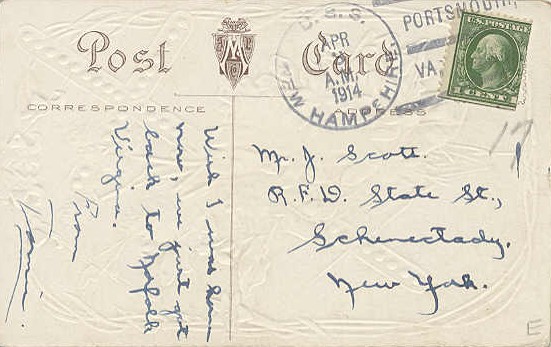 Post Card
CORRESPONDENCE
ADDRESS
U.S.S.
NEW HAMPSHIRE
APR
A.M.
1914
PORTSMOUTH,
VA.
U.S. POSTAGE
1 CENT 1
Wish I was home
now, we just got
back to Norfolk
Virginia.
From
Mr. J. Scott.
R.F.D. State St.,
Schenectady.
New York.
17
E